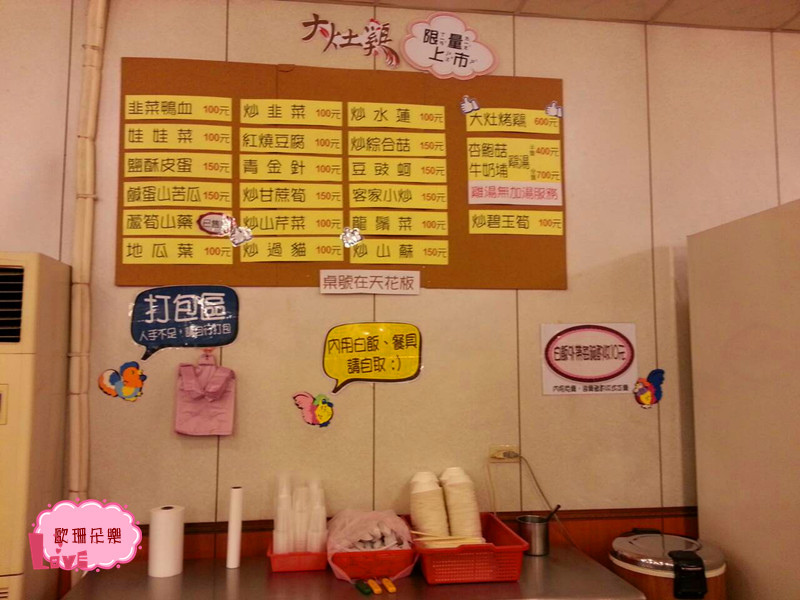 大灶雞
限量
上市
韭菜鴨血 100元
娃娃菜 100元
鹽酥皮蛋 150元
鹹蛋山苦瓜 150元
蘆筍山藥
地瓜葉 100元
炒韭菜 100元
紅燒豆腐 100元
青金針 100元
炒甘蔗筍 150元
炒山芹菜 100元
炒過貓 100元
炒水蓮 100元
炒綜合菇 150元
豆豉蚵 150元
客家小炒 150元
龍鬚菜 100元
炒山蘇 150元
大灶烤雞 600元
杏鮑菇
牛奶埔
雞湯
400元
700元
雞湯無加湯服務
炒碧玉筍 100元
桌號在天花板
打包區
人手不足,請自行打包
內用白飯、餐具
請自取:)
白飯外帶每碗酌收10元
歐珊朵樂
Love